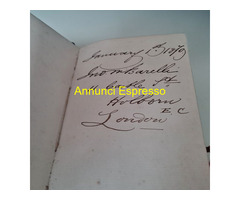 January 1st 1879
Jno M Barelli
Holborn
E C
London
Annunci Espresso